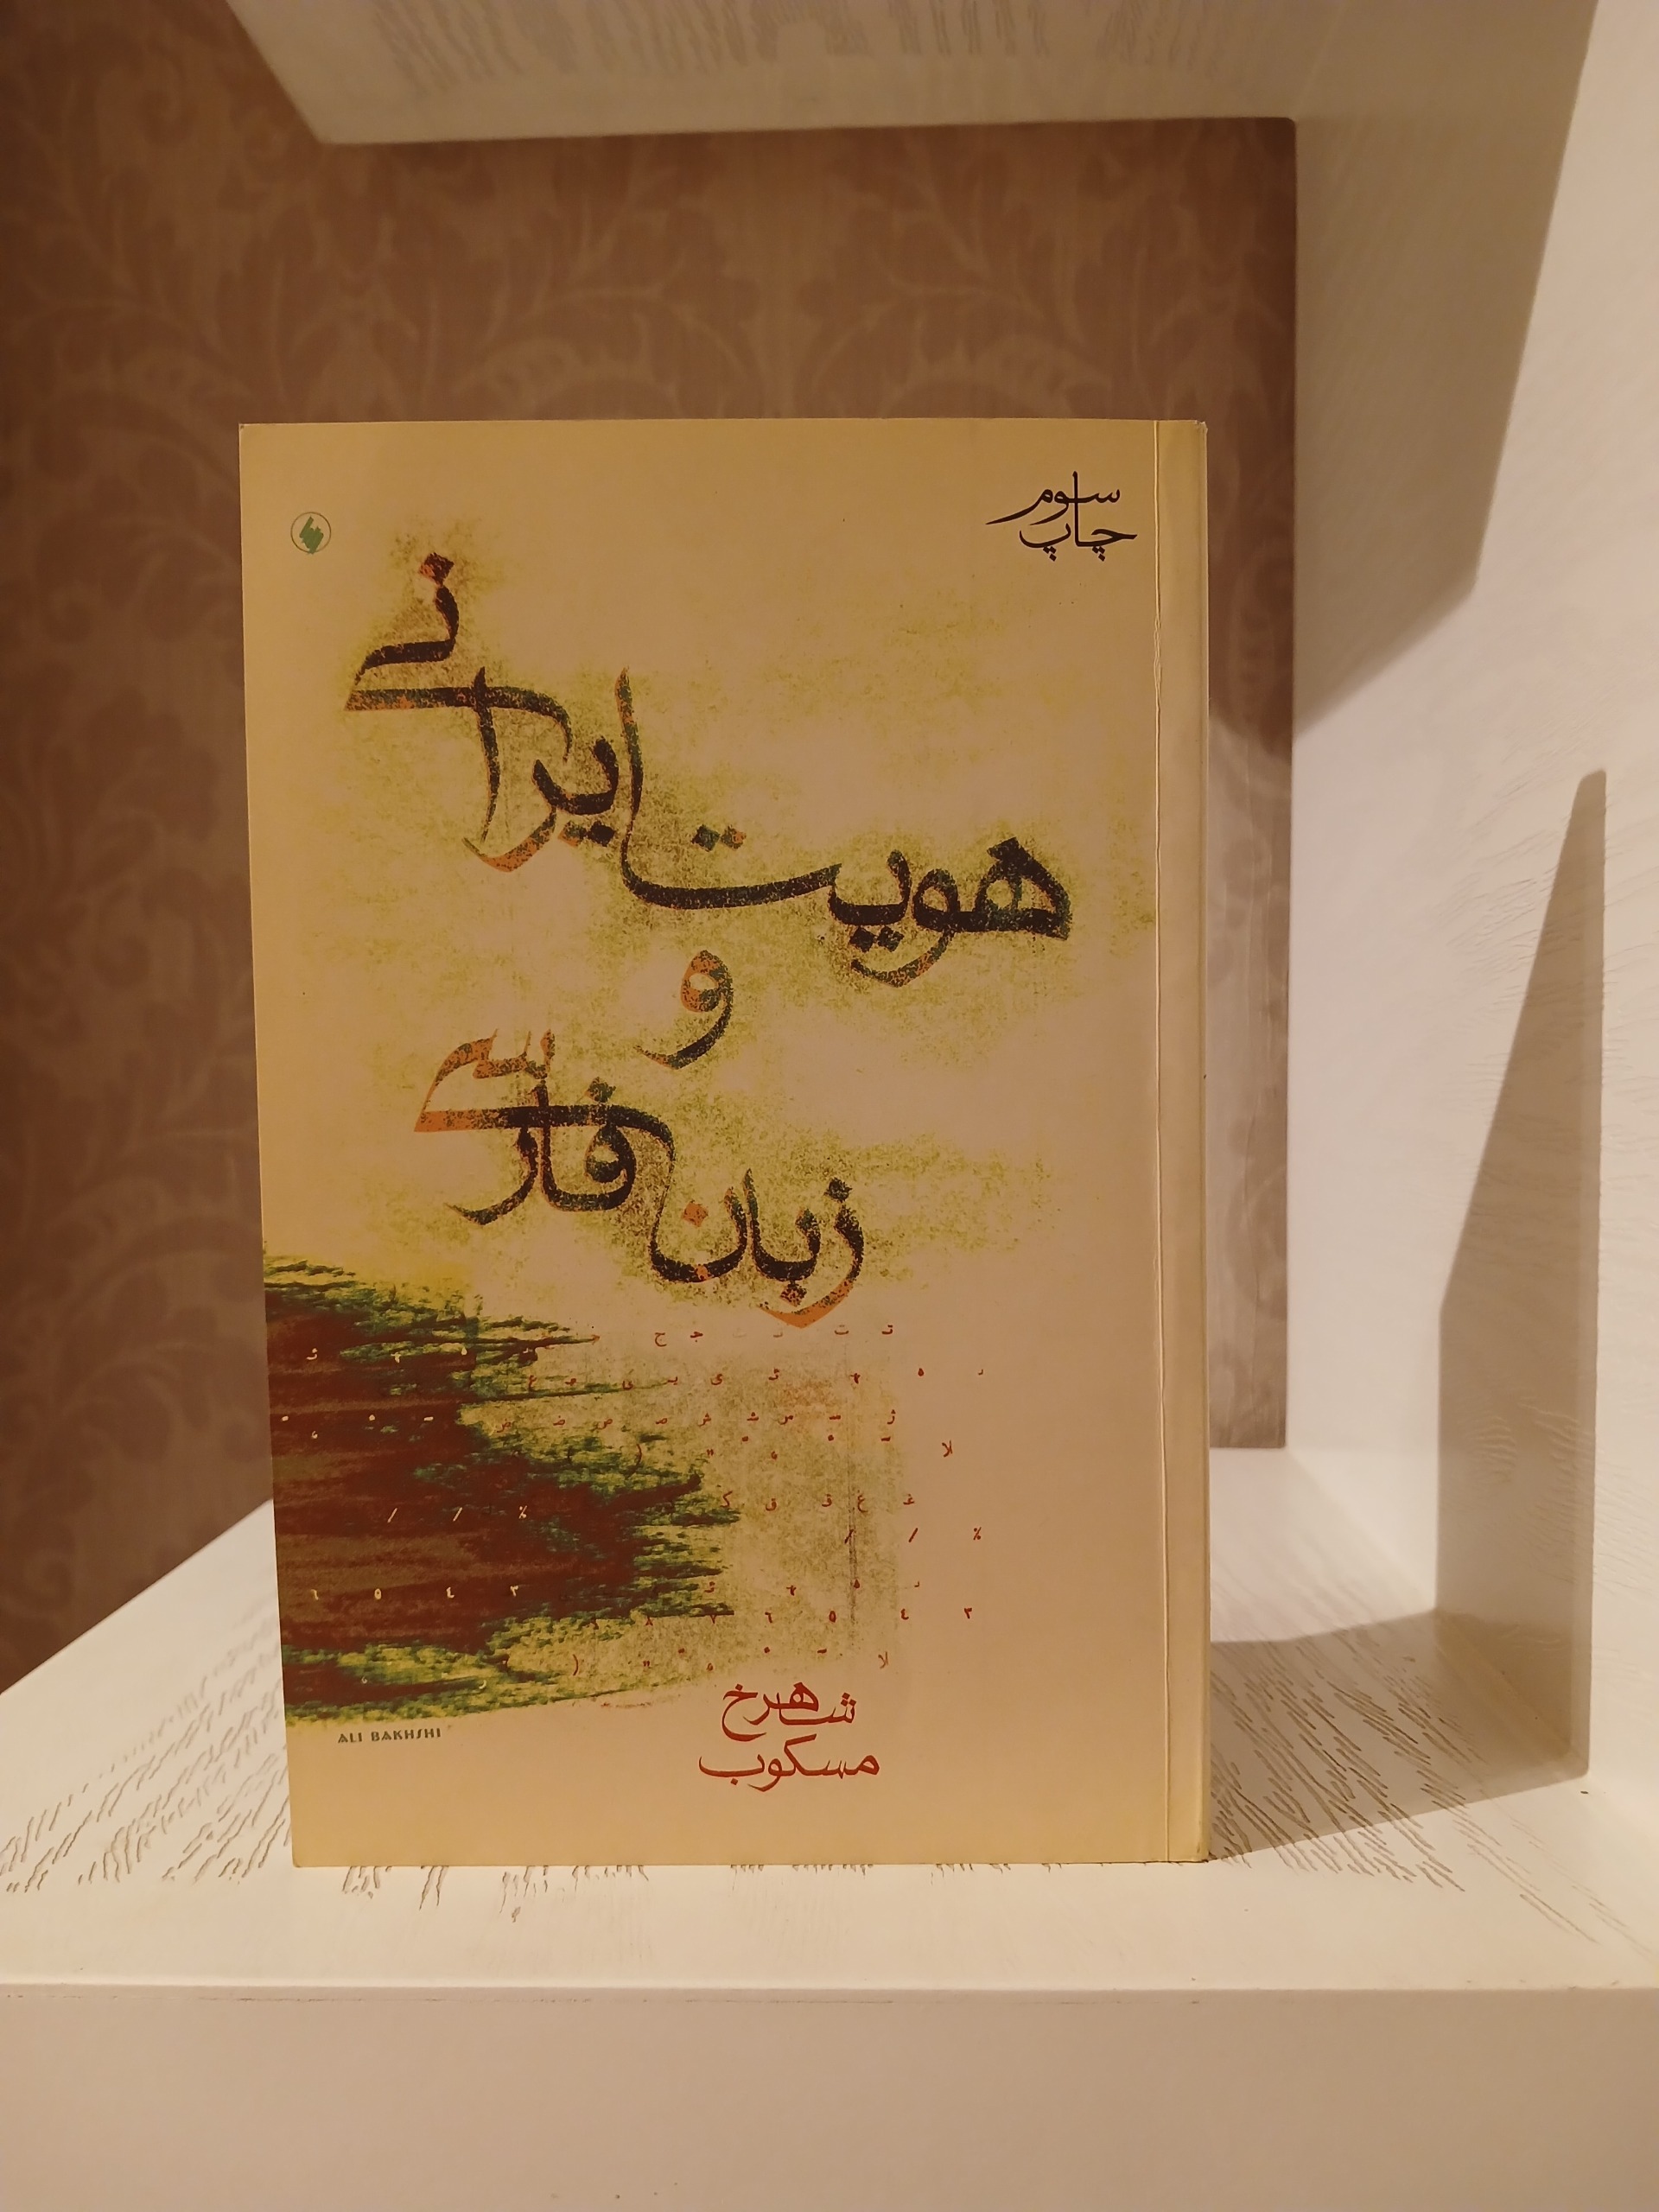 چاپ سوم
هویت ایرانی
و
زبان فارسی
شاهرخ
مسکوب
ALI BAKHSHI